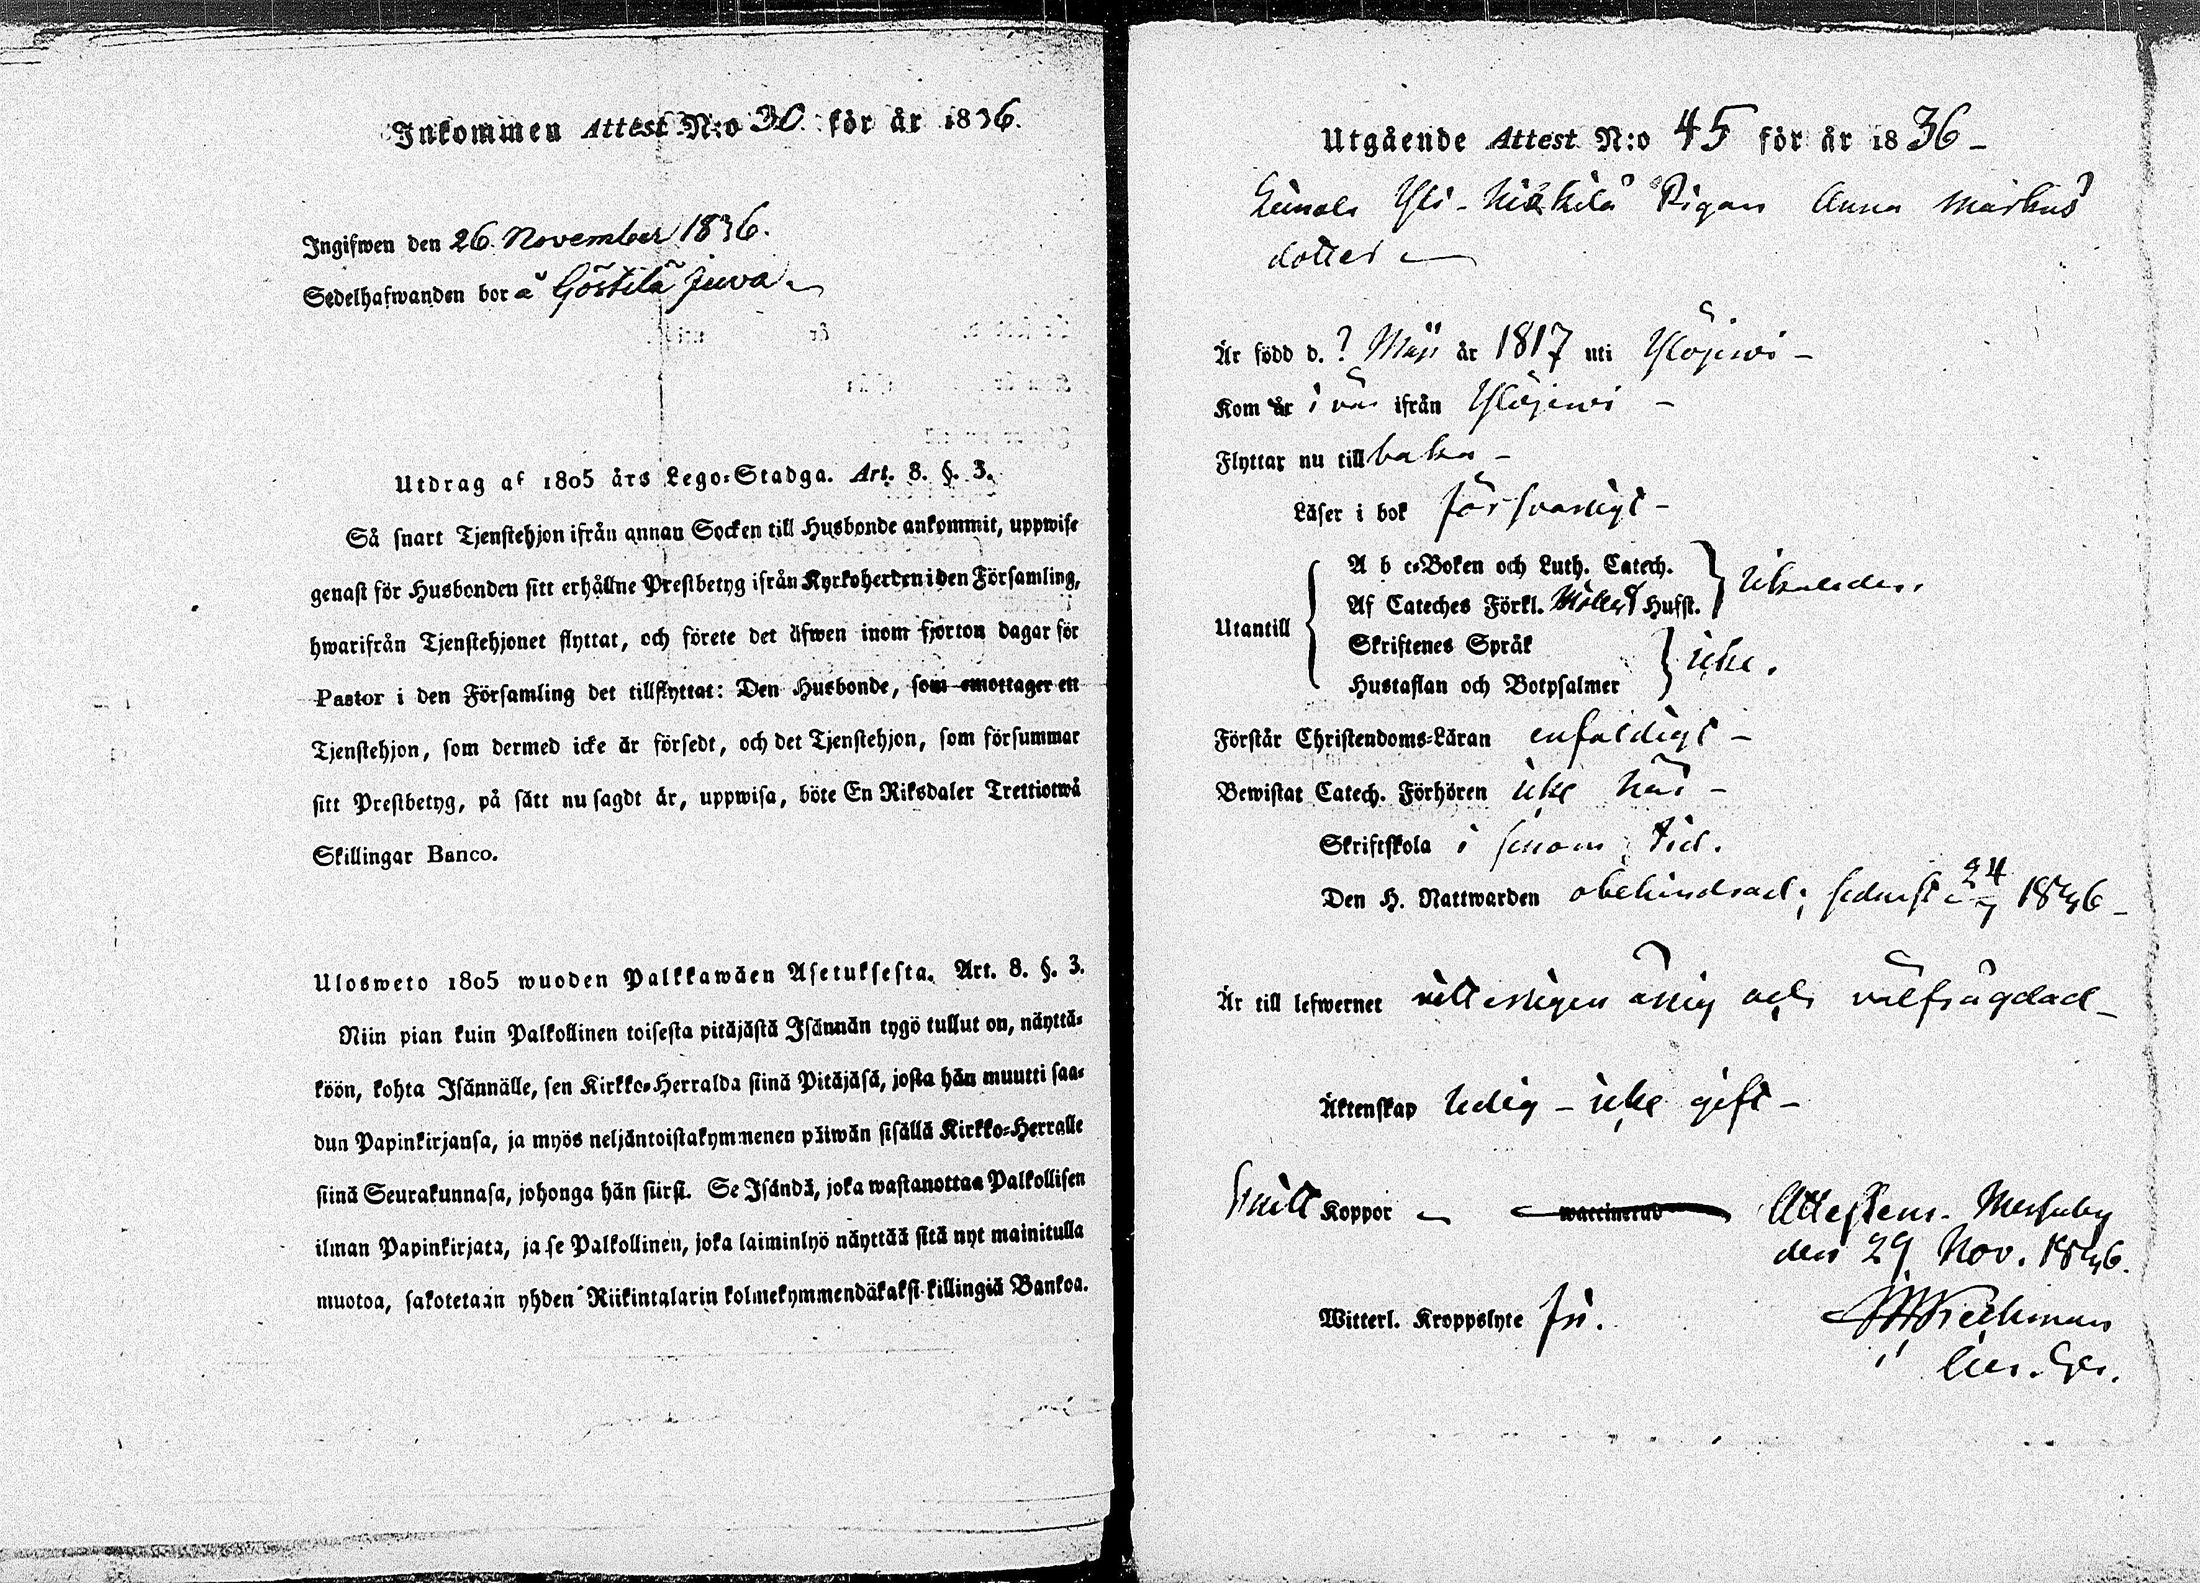 Inkommen Attest N:o 30 för år 1836.
Ingifwen den 26. November 1836.
Sedelhafwanden bor å Göstilä Juva
Utdrag af 1805 års Lego-Stadga. Art. 8. §. 3.
Så snart Tjenstehjon ifrån annan Socken till Husbonde ankommit, uppwise
genast för Husbonden sitt erhållne Prestbetyg ifrån Kyrkoherden i den Församling,
hwarifrån Tjenstehjonet flyttat, och förete det äfwen inom fjorton dagar för
Pastor i den Församling det tillflyttat: Den Husbonde, som emottager ett
Tjenstehjon, som dermed icke är försedt, och det Tjenstehjon, som försummar
sitt Prestbetyg, på sätt nu sagdt är, uppwisa, böte En Riksdaler Trettiotwå
Skillingar Banco.
Ulosweto 1805 wuoden Palkkawäen Asetuksesta. Art. 8. §. 3.
Niin pian kuin Palkollinen toisesta pitäjästä Isännän tygö tullut on, näyttä-
köön, kohta Isännälle, sen Kirkko-Herralda siinä Pitäjäsä, josta hän muutti saa-
dun Papinkirjansa, ja myös neljäntoistakymmenen päiwän sisällä Kirkko-Herralle
siinä Seurakunnasa, johonga hän siirsi. Se Isändä, joka wastanottaa Palkollisen
ilman Papinkirjata, ja se Palkollinen, joka laiminlyö näyttää sitä nyt mainitulla
muotoa, sakotetaan yhden Riikintalarin kolmekymmendäkaksi killingiä Bankoa.
Utgående Attest N:o 45 för år 1836
Yli Pigan Anna Markus
dotter
Är född d. ? Maji år 1817 uti Ylöjerwi
Kom år i vår ifrån Ylöjerwi
Flyttar nu tillbaka
Läser i bok försvarligt
Utantill
A b c-Boken och Luth. Catech.
Af Cateches Förkl. Hufst.
Skriftenes Språk
icke.
Hustaflan och Botpsalmer
Förstår Christendoms-Läran enfaldigt
Bewistat Catech. Förhören icke här
Skriftskola i sinom tid.
Den H. Nattwarden obehindrad; sednast 24/7 1836
Är till lefwernet ärlig och välfrägdad
Äktenskap ledig - icke gift
Koppor waccinerad Attestera. Messuby
den 29 Nov. 1836.
Witterl. Kroppslyte fri.